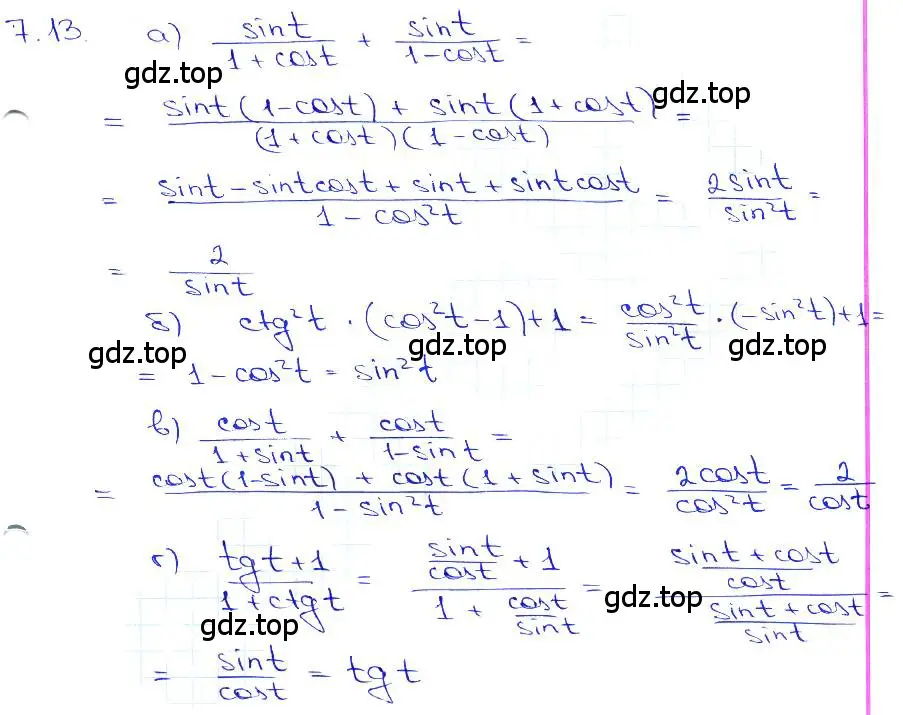 7.13. а) sint/(1 + cost) + sint/(1 - cost) =
gdz.top
= (sint(1 - cost) + sint(1 + cost))/((1 + cost)(1 - cost)) =
gdz.top
= (sint - sintcost + sint + sintcost)/(1 - cos²t) = 2sint/sin²t =
= 2/sint
б) ctg²t · (cos²t - 1) + 1 = cos²t/sin²t · (-sin²t) + 1 =
gdz.top gdz.top gdz.top
= 1 - cos²t = sin²t
в) cost/(1 + sint) + cost/(1 - sint) =
= (cost(1 - sint) + cost(1 + sint))/(1 - sin²t) = 2cost/cos²t = 2/cost
г) (tgt + 1)/(1 + ctgt) = (sint/cost + 1)/(1 + cost/sint) = ((sint + cost)/cost)/((sint + cost)/sint) =
gdz.top gdz.top
= sint/cost = tgt